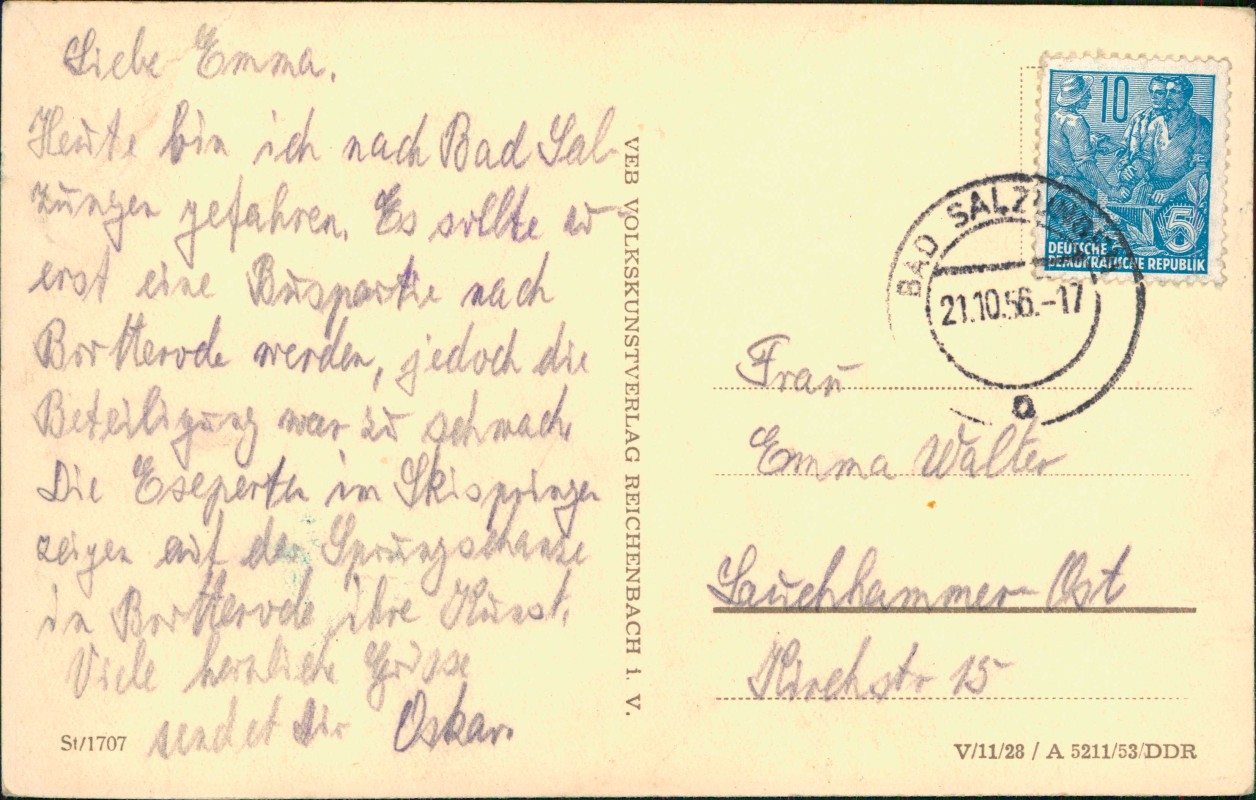 Liebe Emma.
Heute bin ich nach Bad Sal-
zungen gefahren. Es sollte zu-
erst eine Buspartie nach
Brotterode werden, jedoch die
Beteiligung war zu schwach.
Die Eseperten im Skispringen
zeigen auf der Sprungschanze
in Brotterode ihre Kunst.
Viele herzliche Grüsse
sendet Dir Oskar.
St/1707
VEB VOLKSKUNSTVERLAG REICHENBACH i. V.
10
5
DEUTSCHE
DEMOKRATISCHE REPUBLIK
BAD SALZUNGEN
21.10.56.-17
a
Frau
Emma Walter
Lauchhammer-Ost
Kirchstr 15
V/11/28 / A 5211/53/DDR